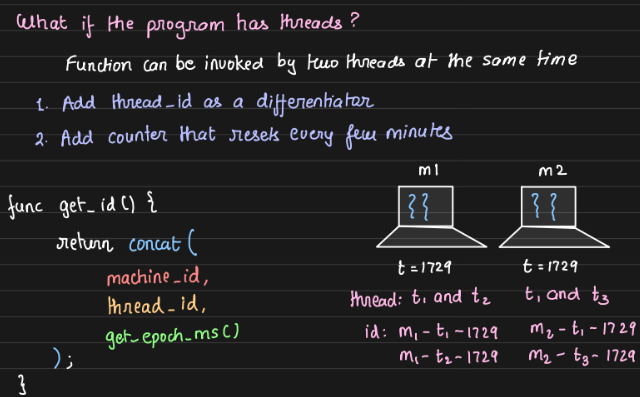 What if the program has threads?
Function can be invoked by two threads at the same time
1. Add thread_id as a differentiator
2. Add counter that resets every few minutes
func get_id() {
return concat(
machine_id,
thread_id,
get_epoch_ms()
);
}
m1 m2
t = 1729 t = 1729
thread: t₁ and t₂ t₁ and t₃
id: m₁ - t₁ - 1729 m₂ - t₁ - 1729
m₁ - t₂ - 1729 m₂ - t₃ - 1729